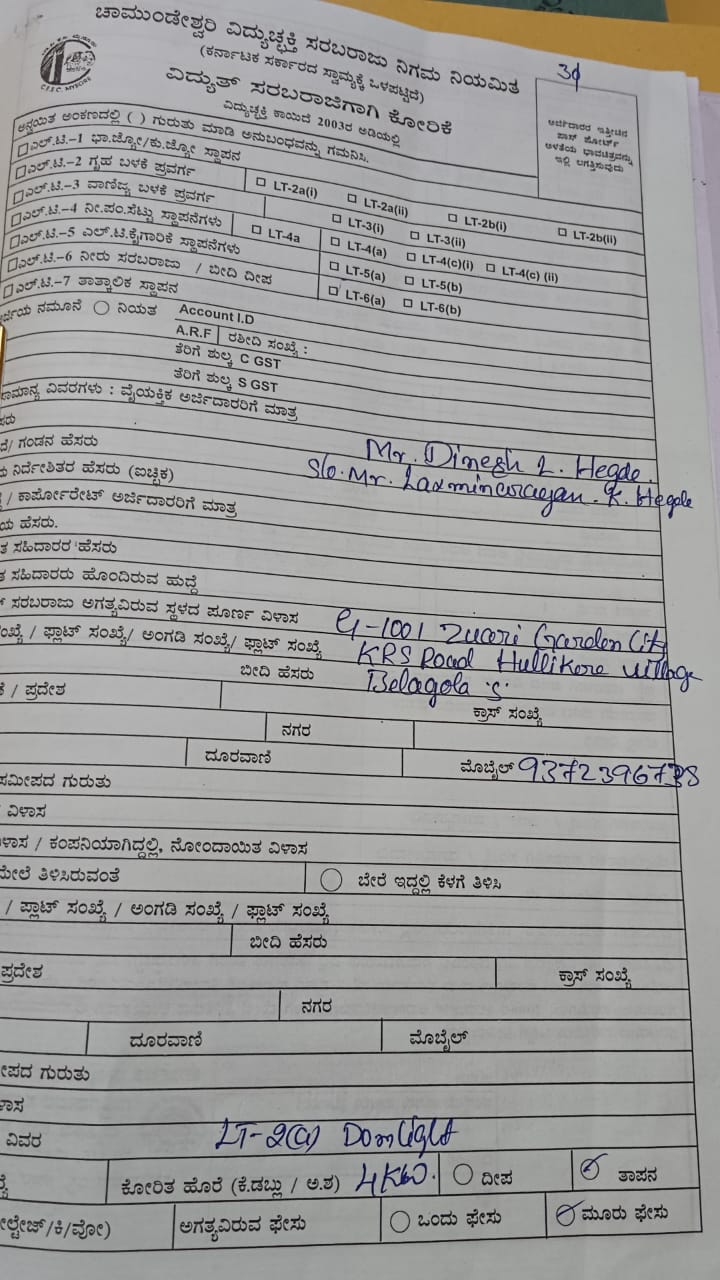 ಚಾಮುಂಡೇಶ್ವರಿ ವಿದ್ಯುಚ್ಛಕ್ತಿ ಸರಬರಾಜು ನಿಗಮ ನಿಯಮಿತ
(ಕರ್ನಾಟಕ ಸರ್ಕಾರದ ಸ್ವಾಮ್ಯಕ್ಕೆ ಒಳಪಟ್ಟಿದೆ)
C.E.S.C. MYSORE
ವಿದ್ಯುತ್ ಸರಬರಾಜಿಗಾಗಿ ಕೋರಿಕೆ
ವಿದ್ಯುಚ್ಛಕ್ತಿ ಕಾಯಿದೆ 2003ರ ಅಡಿಯಲ್ಲಿ
ಅರ್ಜಿದಾರರ ಇತ್ತೀಚಿನ
ಪಾಸ್ ಪೋರ್ಟ್
ಅಳತೆಯ ಭಾವಚಿತ್ರವನ್ನು
ಇಲ್ಲಿ ಲಗತ್ತಿಸುವುದು
ಅನ್ವಯಿತ ಅಂಕಣದಲ್ಲಿ ( ) ಗುರುತು ಮಾಡಿ ಅನುಬಂಧವನ್ನು ಗಮನಿಸಿ.
ಎಲ್.ಟಿ.-1 ಭಾ.ಜ್ಯೋ/ಕು.ಜ್ಯೋ ಸ್ಥಾಪನ
ಎಲ್.ಟಿ.-2 ಗೃಹ ಬಳಕೆ ಪ್ರವರ್ಗ LT-2a(i) LT-2a(ii) LT-2b(i) LT-2b(ii)
ಎಲ್.ಟಿ.-3 ವಾಣಿಜ್ಯ ಬಳಕೆ ಪ್ರವರ್ಗ LT-3(i) LT-3(ii)
ಎಲ್.ಟಿ.-4 ನೀ.ಪಂ.ಸೆಟ್ಟು ಸ್ಥಾಪನೆಗಳು LT-4a LT-4(a) LT-4(c)(i) LT-4(c) (ii)
ಎಲ್.ಟಿ.-5 ಎಲ್.ಟಿ.ಕೈಗಾರಿಕೆ ಸ್ಥಾಪನೆಗಳು LT-5(a) LT-5(b)
ಎಲ್.ಟಿ.-6 ನೀರು ಸರಬರಾಜು / ಬೀದಿ ದೀಪ LT-6(a) LT-6(b)
ಎಲ್.ಟಿ.-7 ತಾತ್ಕಾಲಿಕ ಸ್ಥಾಪನ
ರ್ಜಿಯ ನಮೂನೆ ನಿಯತ Account I.D
A.R.F ರಶೀದಿ ಸಂಖ್ಯೆ :
ತೆರಿಗೆ ಶುಲ್ಕ C GST
ತೆರಿಗೆ ಶುಲ್ಕ S GST
ಾಮಾನ್ಯ ವಿವರಗಳು : ವೈಯಕ್ತಿಕ ಅರ್ಜಿದಾರರಿಗೆ ಮಾತ್ರ
ಸರು Mr. Dinesh L. Hegde.
ದೆ/ ಗಂಡನ ಹೆಸರು S/o. Mr. Laxminarayan. K. Hegde
ನಿರ್ದೇಶಿತರ ಹೆಸರು (ಐಚ್ಛಿಕ)
/ ಕಾರ್ಪೋರೇಟ್ ಅರ್ಜಿದಾರರಿಗೆ ಮಾತ್ರ
ಯ ಹೆಸರು.
ತ ಸಹಿದಾರರ ಹೆಸರು
ತ ಸಹಿದಾರರು ಹೊಂದಿರುವ ಹುದ್ದೆ
ಸರಬರಾಜು ಅಗತ್ಯವಿರುವ ಸ್ಥಳದ ಪೂರ್ಣ ವಿಳಾಸ
ಂಖ್ಯೆ / ಫ್ಲಾಟ್ ಸಂಖ್ಯೆ/ ಅಂಗಡಿ ಸಂಖ್ಯೆ/ ಫ್ಲಾಟ್ ಸಂಖ್ಯೆ G-1001 Zuari Garden City
ಬೀದಿ ಹೆಸರು KRS Road Hullikere village
/ ಪ್ರದೇಶ Belagola 'S'
ಕ್ರಾಸ್ ಸಂಖ್ಯೆ
ನಗರ
ದೂರವಾಣಿ ಮೊಬೈಲ್
ಸಮೀಪದ ಗುರುತು
ವಿಳಾಸ
ಳಾಸ / ಕಂಪನಿಯಾಗಿದ್ದಲ್ಲಿ, ನೋಂದಾಯಿತ ವಿಳಾಸ
ಮೇಲೆ ತಿಳಿಸಿರುವಂತೆ ಬೇರೆ ಇದ್ದಲ್ಲಿ ಕೆಳಗೆ ತಿಳಿಸಿ
/ ಪ್ಲಾಟ್ ಸಂಖ್ಯೆ / ಅಂಗಡಿ ಸಂಖ್ಯೆ / ಫ್ಲಾಟ್ ಸಂಖ್ಯೆ
ಬೀದಿ ಹೆಸರು
ಪ್ರದೇಶ ಕ್ರಾಸ್ ಸಂಖ್ಯೆ
ನಗರ
ದೂರವಾಣಿ ಮೊಬೈಲ್
ೀಪದ ಗುರುತು
ಳಾಸ
ವಿವರ LT-2(a) Domlight
ಕೋರಿತ ಹೊರೆ (ಕೆ.ಡಬ್ಲು / ಅ.ಶ) 4KW. ದೀಪ ತಾಪನ
ೋಲ್ಟೇಜ್/ಕಿ/ವೋ) ಅಗತ್ಯವಿರುವ ಫೇಸು ಒಂದು ಫೇಸು ಮೂರು ಫೇಸು